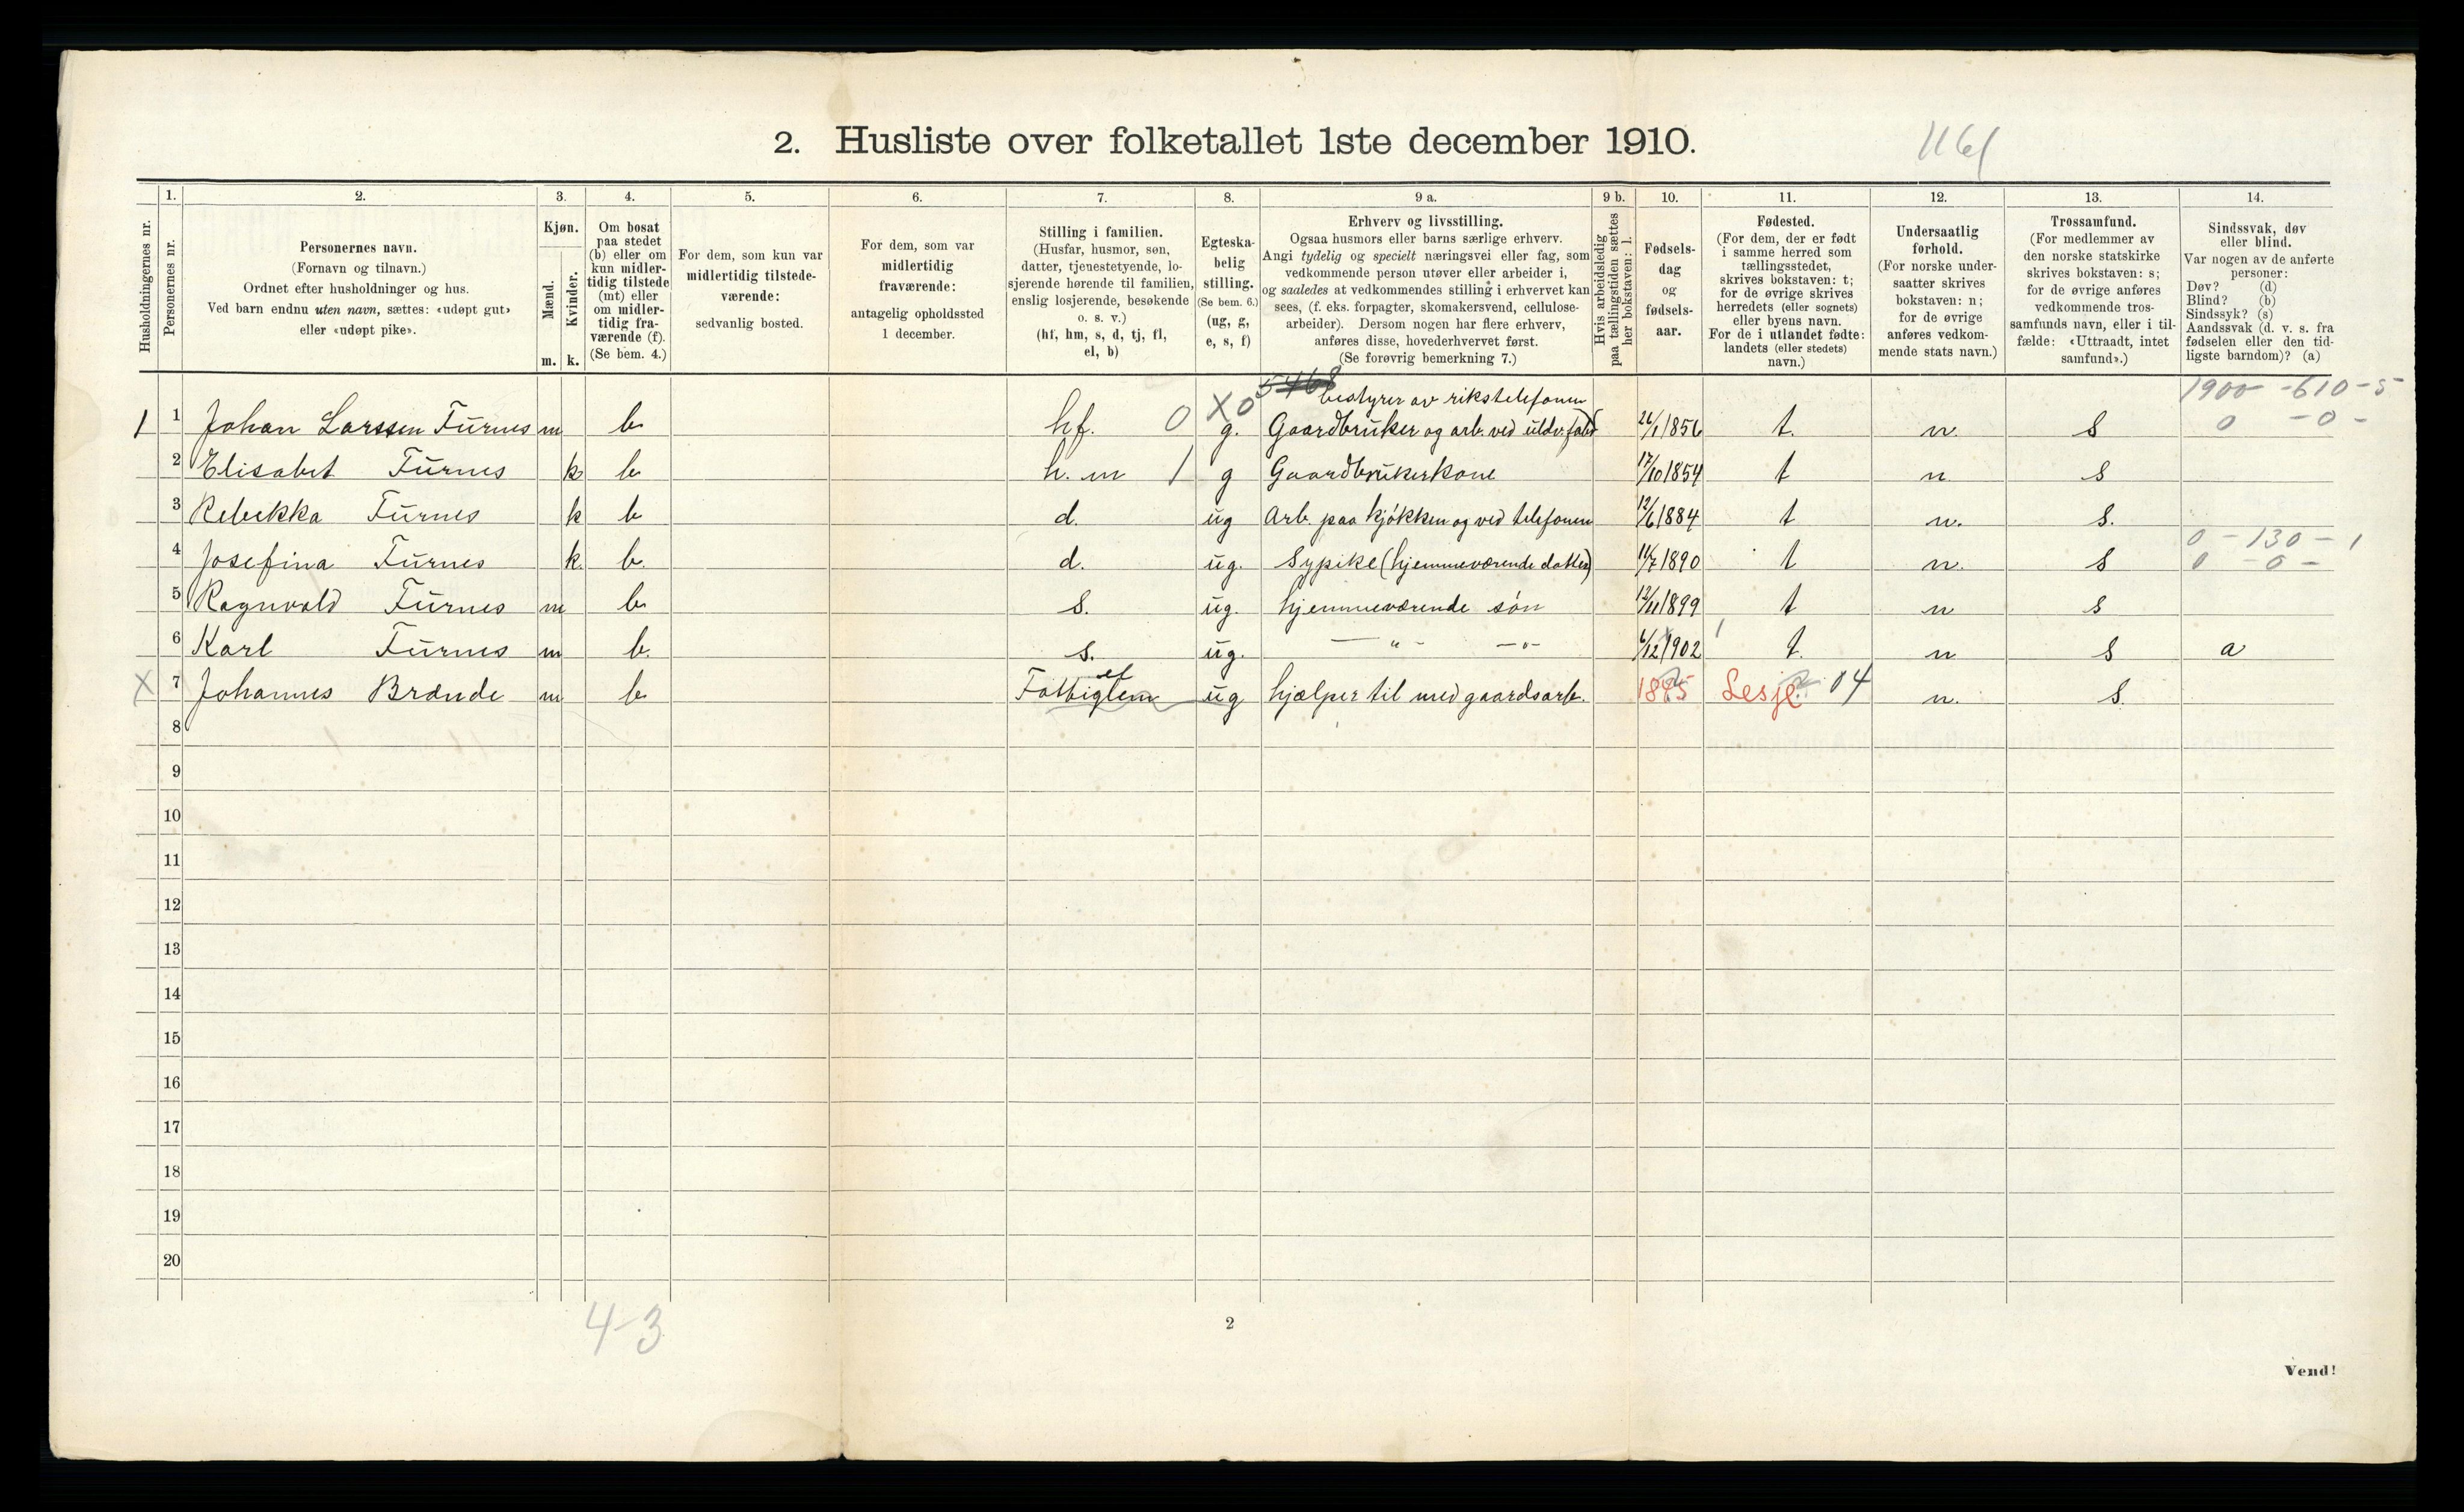 2. Husliste over folketallet 1ste december 1910.
1161
Husholdningernes nr.
1.
Personernes nr.
2.
Personernes navn.
(Fornavn og tilnavn.)
Ordnet efter husholdninger og hus.
Ved barn endnu uten navn, sættes: «udøpt gut»
eller «udøpt pike».
3.
Kjøn.
Mænd.
Kvinder.
m. k.
4.
Om bosat
paa stedet
(b) eller om
kun midler-
tidig tilstede
(mt) eller
om midler-
tidig fra-
værende (f).
(Se bem. 4.)
5.
For dem, som kun var
midlertidig tilstede-
værende:
sedvanlig bosted.
6.
For dem, som var
midlertidig
fraværende:
antagelig opholdssted
1 december.
7.
Stilling i familien.
(Husfar, husmor, søn,
datter, tjenestetyende, lo-
sjerende hørende til familien,
enslig losjerende, besøkende
o. s. v.)
(hf, hm, s, d, tj, fl,
el, b)
8.
Egteska-
belig
stilling.
(Se bem. 6.)
(ug, g,
e, s, f)
9 a.
Erhverv og livsstilling.
Ogsaa husmors eller barns særlige erhverv.
Angi tydelig og specielt næringsvei eller fag, som
vedkommende person utøver eller arbeider i,
og saaledes at vedkommendes stilling i erhvervet kan
sees, (f. eks. forpagter, skomakersvend, cellulose-
arbeider). Dersom nogen har flere erhverv,
anføres disse, hovederhvervet først.
(Se forøvrig bemerkning 7.)
9 b.
Hvis arbeidsledig
paa tællingstiden sættes
her bokstaven: l.
10.
Fødsels-
dag
og
fødsels-
aar.
11.
Fødested.
(For dem, der er født
i samme herred som
tællingsstedet,
skrives bokstaven: t;
for de øvrige skrives
herredets (eller sognets)
eller byens navn.
For de i utlandet fødte:
landets (eller stedets)
navn.)
12.
Undersaatlig
forhold.
(For norske under-
saatter skrives
bokstaven: n;
for de øvrige
anføres vedkom-
mende stats navn.)
13.
Trossamfund.
(For medlemmer av
den norske statskirke
skrives bokstaven: s;
for de øvrige anføres
vedkommende tros-
samfunds navn, eller i til-
fælde: «Uttraadt, intet
samfund».)
14.
Sindssvak, døv
eller blind.
Var nogen av de anførte
personer:
Døv? (d)
Blind? (b)
Sindssyk? (s)
Aandssvak (d. v. s. fra
fødselen eller den tid-
ligste barndom)? (a)
5468 bestyrer av rikstelefonen 1900 - 610 - 5
1 1 Johan Larssen Furnes m b hf. 0 X0 g. Gaardbruker og arb. ved uldv.fabr 26/1 1856 t. n. s 0 - 0 -
2 Elisabet Furnes k b h.m 1 g Gaardbrukerkone 17/10 1854 t n s
3 Rebekka Furnes k b d. ug Arb. paa kjøkken og ved telefonen 12/6 1884 t n. s.
0 - 130 - 1
4 Josefina Furnes k. b. d. ug. Sypike (hjemmeværende datter) 11/7 1890 t n. s 0 - 0 -
5 Ragnvald Furnes m b s. ug. hjemmeværende søn 12/11 1899 t n s
6 Karl Furnes m b. s. ug. — " — — " — 6/12 1902 t. n s a
X 7 Johannes Brænde m b Fattiglem el ug hjælper til med gaardsarb. Lesje 04 n. s.
8
9
10
11
12
13
14
15
16
17
18
19
20
4-3
2
Vend!